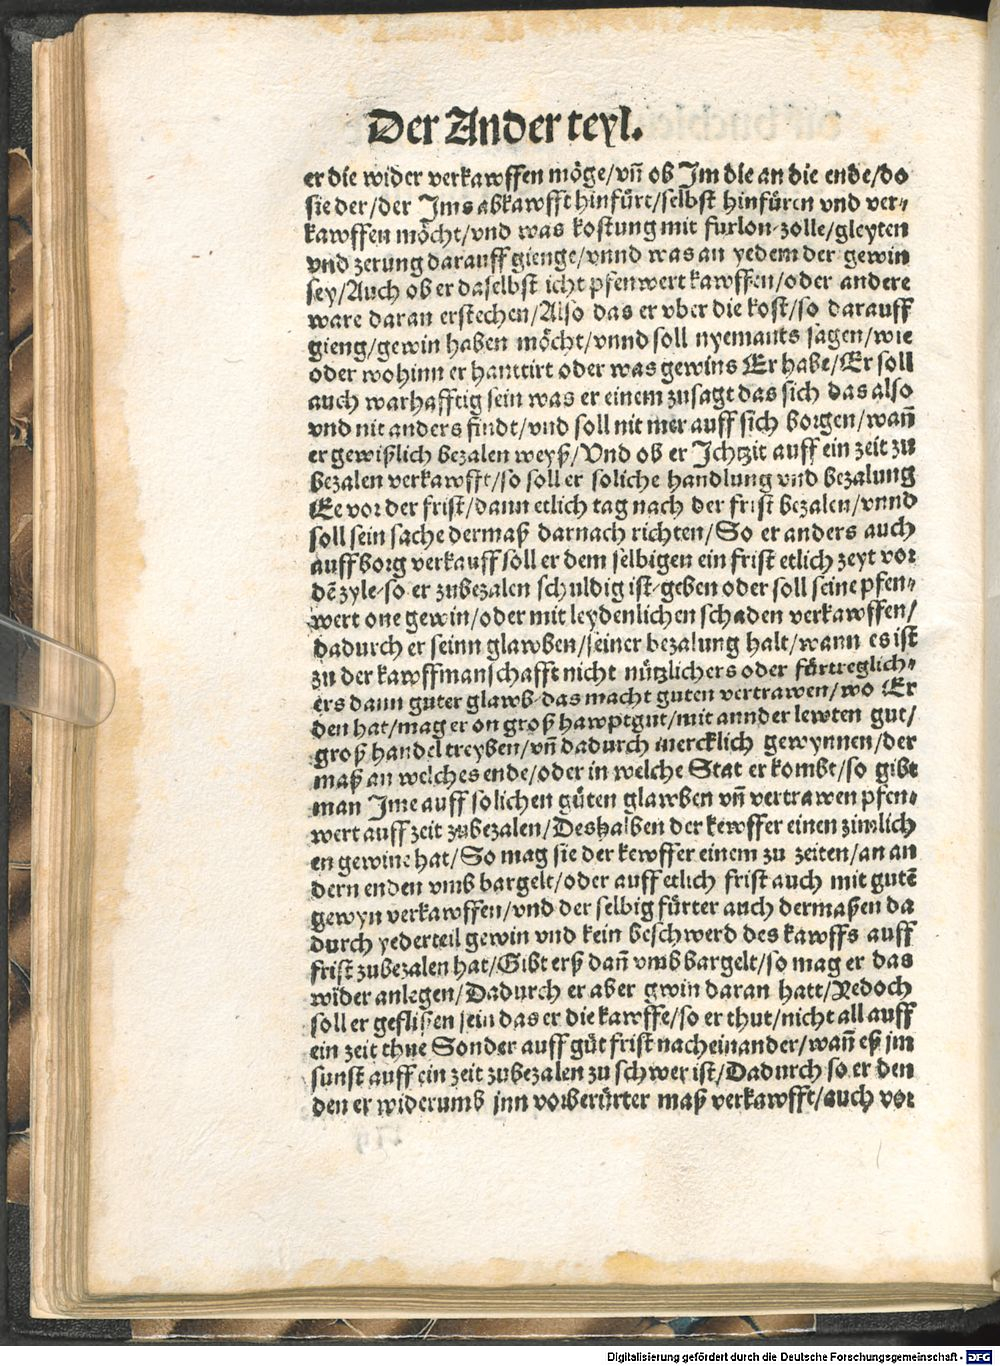 Der Ander teyl.
er die wider verkawffen möge/vn̄ ob Im die an die ende/do
sie der/der Ims abkawfft hinfürt/selbst hinfüren vnd ver⸗
kawffen möcht/vnd was kostung mit furlon-zolle/gleyten
vnd zerung darauff gienge/vnnd was an yedem der gewin
sey/Auch ob er daselbst icht pfenwert kawffen/oder andere
ware daran erstechen/Also das er vber die kost/so darauff
gieng/gewin haben möcht/vnnd soll nyemants sagen/wie
oder wohinn er hanttirt oder was gewins Er habe/Er soll
auch warhafftig sein was er einem zusagt das sich das also
vnd nit anders findt/vnd soll nit mer auff sich borgen/wan̄
er gewißlich bezalen weyß/Vnd ob er Ichtzit auff ein zeit zu
bezalen verkawfft/so soll er soliche handlung vnd bezalung
Ee vor der frist/dann etlich tag nach der frist bezalen/vnnd
soll sein sache dermaß darnach richten/So er anders auch
auff borg verkauff soll er dem selbigen ein frist etlich zeyt vor
dē zyle-so er zubezalen schuldig ist-geben oder soll seine pfen⸗
wert one gewin/oder mit leydenlichen schaden verkawffen/
dadurch er seinn glawben/seiner bezalung halt/wann es ist
zu der kawffmanschafft nicht nützlichers oder förtreglich⸗
ers dann guter glawb-das macht guten vertrawen/wo Er
den hat/mag er on groß hawptgut/mit annder lewten gut/
groß handel treyben/vn̄ dadurch mercklich gewynnen/der
maß an welches ende/oder in welche Stat er kombt/so gibt
man Ime auff solichen güten glawben vn̄ vertrawen pfen⸗
wert auff zeit zubezalen/Deshalben der kewffer einen zimlich
en gewine hat/So mag sie der kewffer einem zu zeiten/an an
dern enden vmb bargelt/oder auff etlich frist auch mit gutē
gewyn verkawffen/vnd der selbig fürter auch dermaßen da
durch yederteil gewin vnd kein beschwerd des kawffs auff
frist zubezalen hat/Gibt erß dan̄ vmb bargelt/so mag er das
wider anlegen/Dadurch er aber gwin daran hatt/Yedoch
soll er geflißen sein das er die kawffe/so er thut/nicht all auff
ein zeit thue Sonder auff güt frist nacheinander/wan̄ eß jm
sunst auff ein zeit zubezalen zu schwer ist/Dadurch so er den
den er widerumb jnn vorberürter maß verkawfft/auch vor
Digitalisierung gefördert durch die Deutsche Forschungsgemeinschaft - DFG